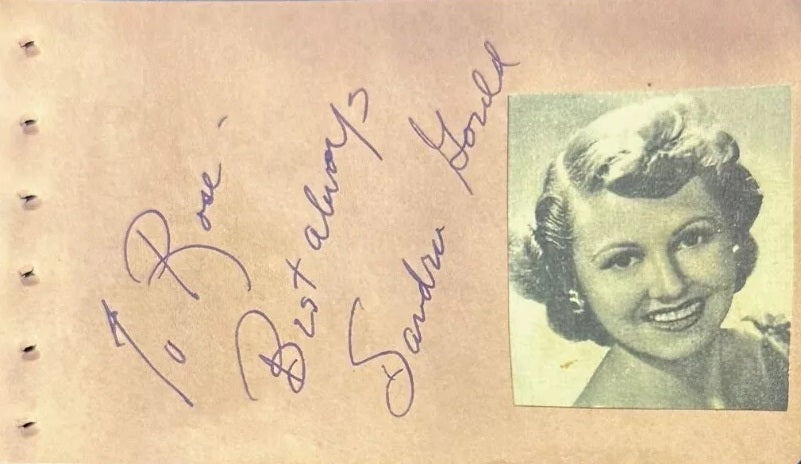 To Rose -
Best always
Sandra Gould